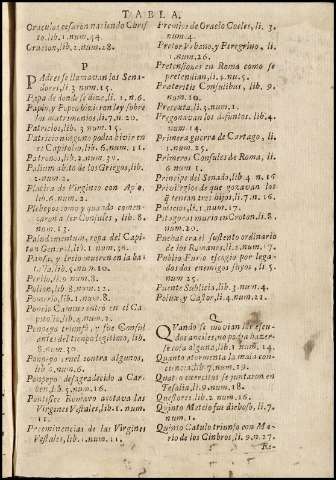 TABLA.
Oraculos cesaron naciendo Christo, lib. 1. num. 44.
Oracion, lib. 2. num. 28.
P
PAdres se llamavan los Senadores, li. 3. num. 15.
Papa de donde se dize, li. 1. n. 6.
los matrimonios, li. 7. n. 20.
Patricios, lib. 3. num. 15.
Patricio ninguno podia bivir en el Capitolio, lib. 6. num. 11.
Patronos, lib. 2. num. 30.
Palium abito de los Griegos, lib. 2. num. 2.
Platica de Virginio con
lib. 6. num. 2.
Plebeyos como y quando comencaron a ser Consules, lib. 8. num. 13.
Paludamentum, ropa del Capitan General, lib. 1. num. 36.
Pansa, y Irsio mueren en la batalla, lib. 4. num. 10.
Perito, lib. 9. num. 8.
Polion, lib. 8. num. 12.
Pomerio, lib. 1. num. 8.
en el Capitolio, lib. 4. num. 2.
Pompeyo triunfò, y fue Consul antes del tiempo legitimo, lib. 8. num. 30.
Pompeyo cruel contra algunos, lib. 6. num. 6.
Pompeyo desagradecido a
lib. 5. num. 16.
Pontifice Romano acotava las Virgines Vestales, lib. 1. num. 11.
Preeminencias de las Virgines Vestales, lib. 1. num. 11.
Premios de Oracio Cocles, li. 3. num. 4.
Pretor Vrbano, y Peregrino, li. 1. num. 26.
Pretensiones en Roma como se pretendian, li. 4. nu. 5.
lib. 9. num. 10.
Pretexta, li. 3. num. 1.
Pregonavan los difuntos, lib. 4. num. 14.
Primera guerra de Cartago, li. 1. num. 25.
Primeros Consules de Roma, li. 6. num. 1.
Principe del Senado, lib. 4. n. 16
Privilegios de que gozavan los q̃ tenian tres hijos, li. 7. n. 16.
li. 1. num. 17.
Pitagoras murio en Croton, li. 8. num. 10.
era el sustento ordinario de los Romanos, li. 2. num. 17.
Publio Furio elogio por legados dos enemigos suyos, li. 5. num. 25
Puente Sublicia, lib. 3. num. 4.
Polux y Castor, li. 4. num. 21.
Q
QVando se movian los escudos anciles, no podia hazerse cosa alguna, lib. 1. num. 14.
Quanto atormenta la mala conciencia, lib. 7. num. 19.
Quatro exercitos se juntaron en Tesalia, li. 9. num. 18.
Questores, lib. 2. num. 16.
Quinto Metio fue dichoso, li. 7. num. 1.
Quinto Catulo triunfò con Mario de los Cinbros, li. 9. n. 27.